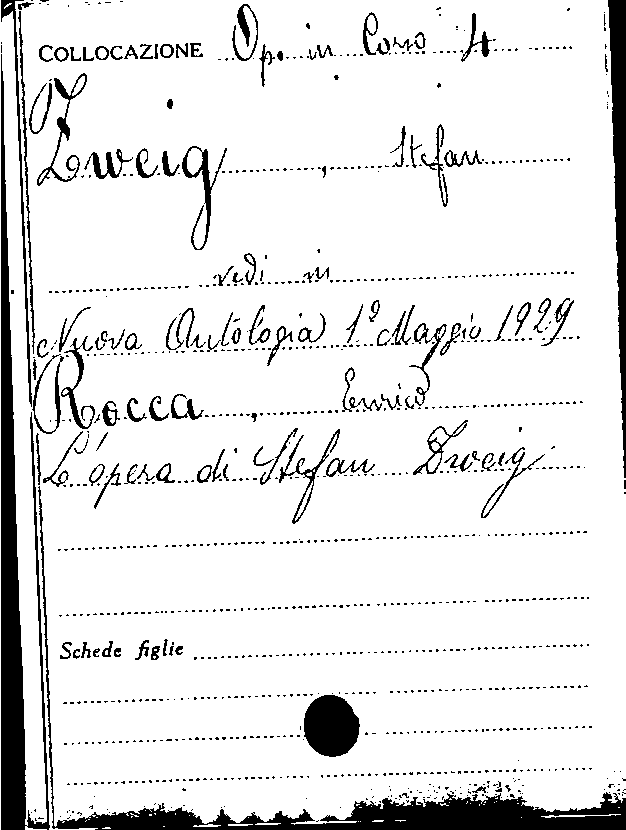 COLLOCAZIONE Op. in Corso 4
Zweig, Stefan
vedi in
Nuova Antologia 1º Maggio 1929
Rocca, Enrico
L'opera di Stefan Zweig
Schede figlie